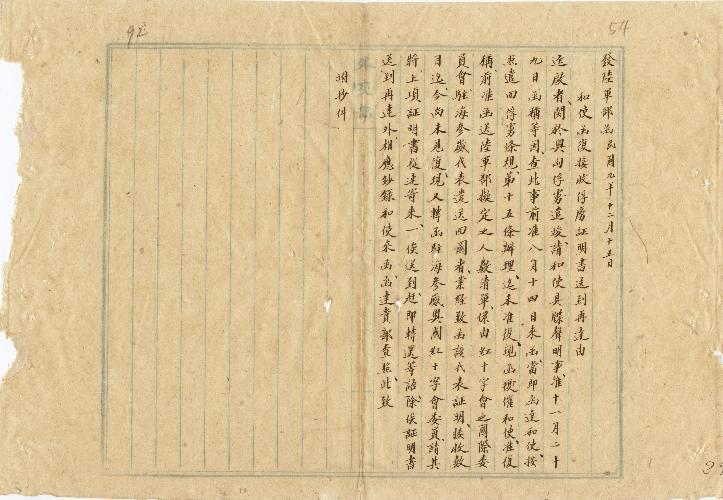 92
54
發陸軍部函 民國九年十二月十五日
和使函復接收俘虜証明書送到再達由
逕啟者關於奧匈俘虜遣竣請和使具牒聲明事准十一月二十
九日函稱等因查此事前准八月十四日來函當即函達和使按
照遣回俘虜條規第十五條辦理迄未准復現函復催和使准復
稱前准函送陸軍部擬定之人數清單係由紅十字會之國際委
員會駐海參崴代表遣送回國者業經致函該代表証明接收數
目迄今尚未見復現又轉函駐海參崴奧國紅十字會委員請其
將上項証明書從速寄來一俟送到赶即轉送等語除俟証明書
送到再達外相應鈔錄和使來函函達貴部查照此致
附抄件
外交部